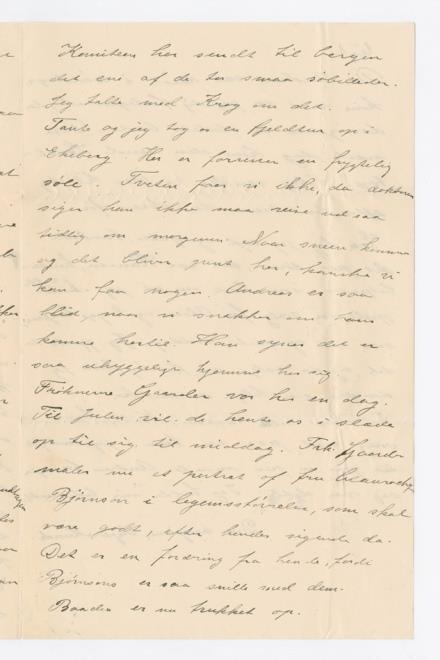 Komiteen har sendt til bergen
det ene af de to smaa søbilleder.
Jeg talte med Krog om det.
Tante og jeg tog os en fjeldtur op i
Ekeberg. Her er forresten en frygtelig
søle. Tveten faar vi ikke, da doktoren
siger han ikke maa reise ud saa
tidlig om morgenen. Naar sneen kommer
og det bliver pent her, kanske vi
kan faa nogen. Andreas er saa
blid naar vi snakker om han
komme herlil. Han synes det er
saa uhyggelige hjemme hos sig.
Frøknerne Gaarder var her en dag.
Til Julen vil de hente os i slæde
op til sig til middag. Frk. Gaarder
maler nu et portræt af fru
Bjørnson i legemsstørrelse, som skal
være godt, efter hendes sigende da.
Det er en fordring fra hende, fordi
Bjørnsons er saa snille med dem.
Baaden er nu trukket op.